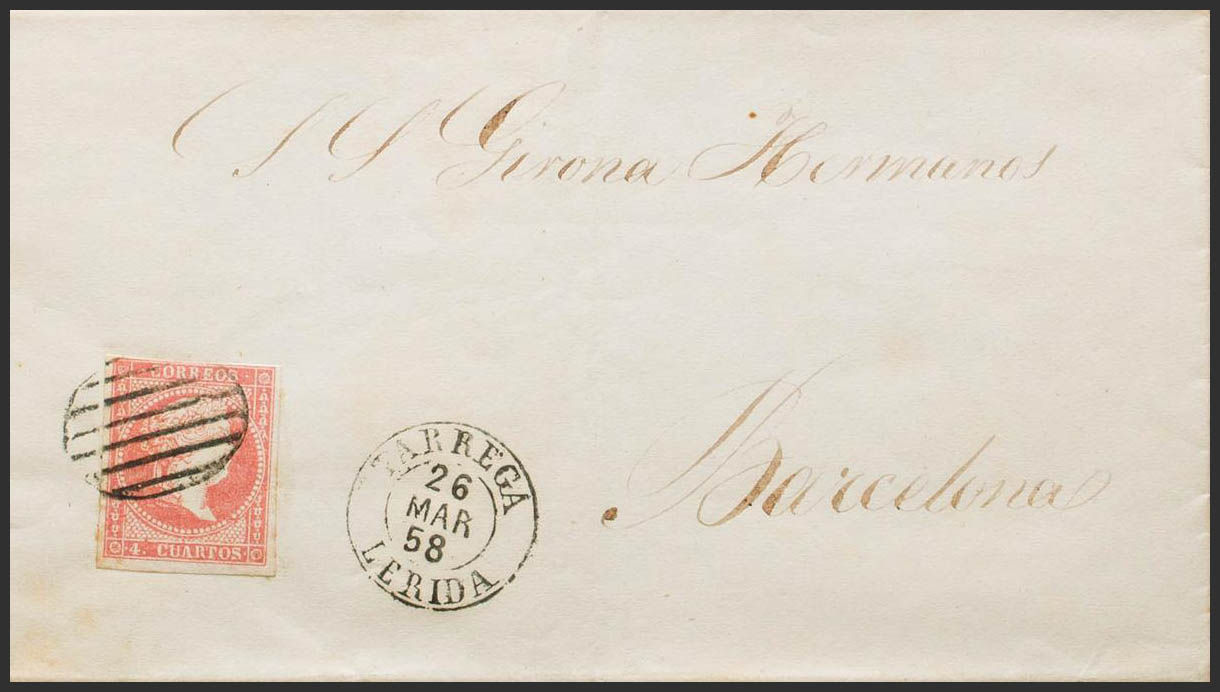 S S Girona Hermanos
CORREOS
4. CUARTOS.
TARREGA
26
MAR
58
LERIDA
Barcelona